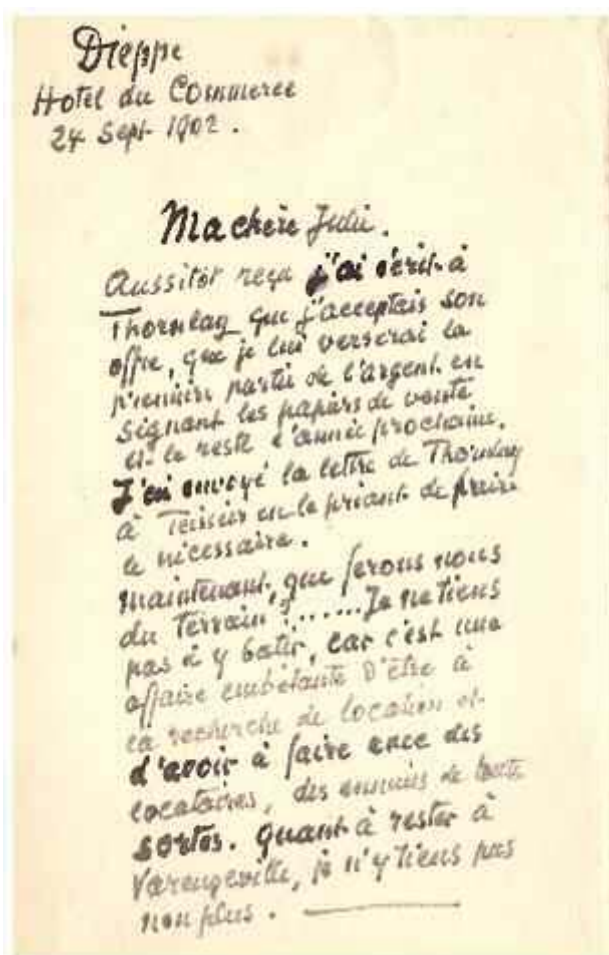 Dieppe
Hotel du Commerce
24 Sept 1902.
Ma chère Julie.
Aussitôt reçu j'ai écrit à
Thornlay que j'acceptais son
offre, que je lui verserai la
première partie de l'argent en
signant les papiers de vente
et le reste l'année prochaine.
J'ai envoyé la lettre de Thornlay
à Teissier en le priant de faire
le nécessaire.
Maintenant, que ferons nous
du Terrain?......Je ne tiens
pas à y batir, car c'est une
affaire embêtante d'être à
la recherche de location et
d'avoir à faire avec des
locataires, des ennuis de toute
sortes. Quant à rester à
Varengeville, je n'y tiens pas
non plus.